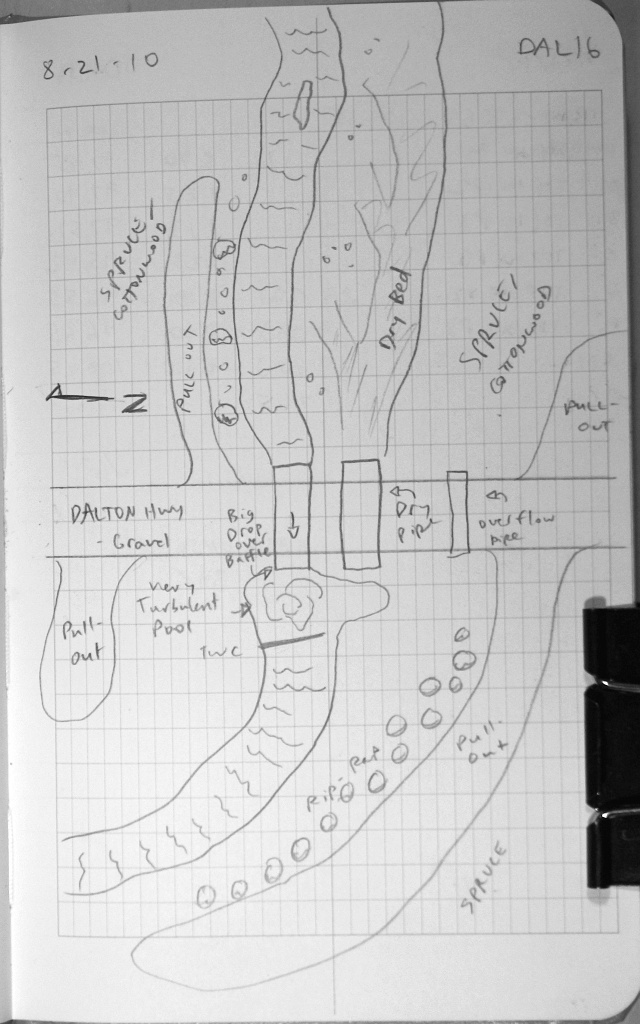 8-21-10
DAL16
SPRUCE-
COTTONWOOD
PULL OUT
Dry Bed
SPRUCE/
COTTONWOOD
PULL-
OUT
N
DALTON Hwy
- Gravel
Big
Drop
over
Baffle
Dry
Pipe
overflow
Pipe
Very
Turbulent
Pool
Pull-
out
TWC
Rip-Rap
Pull-
out
SPRUCE